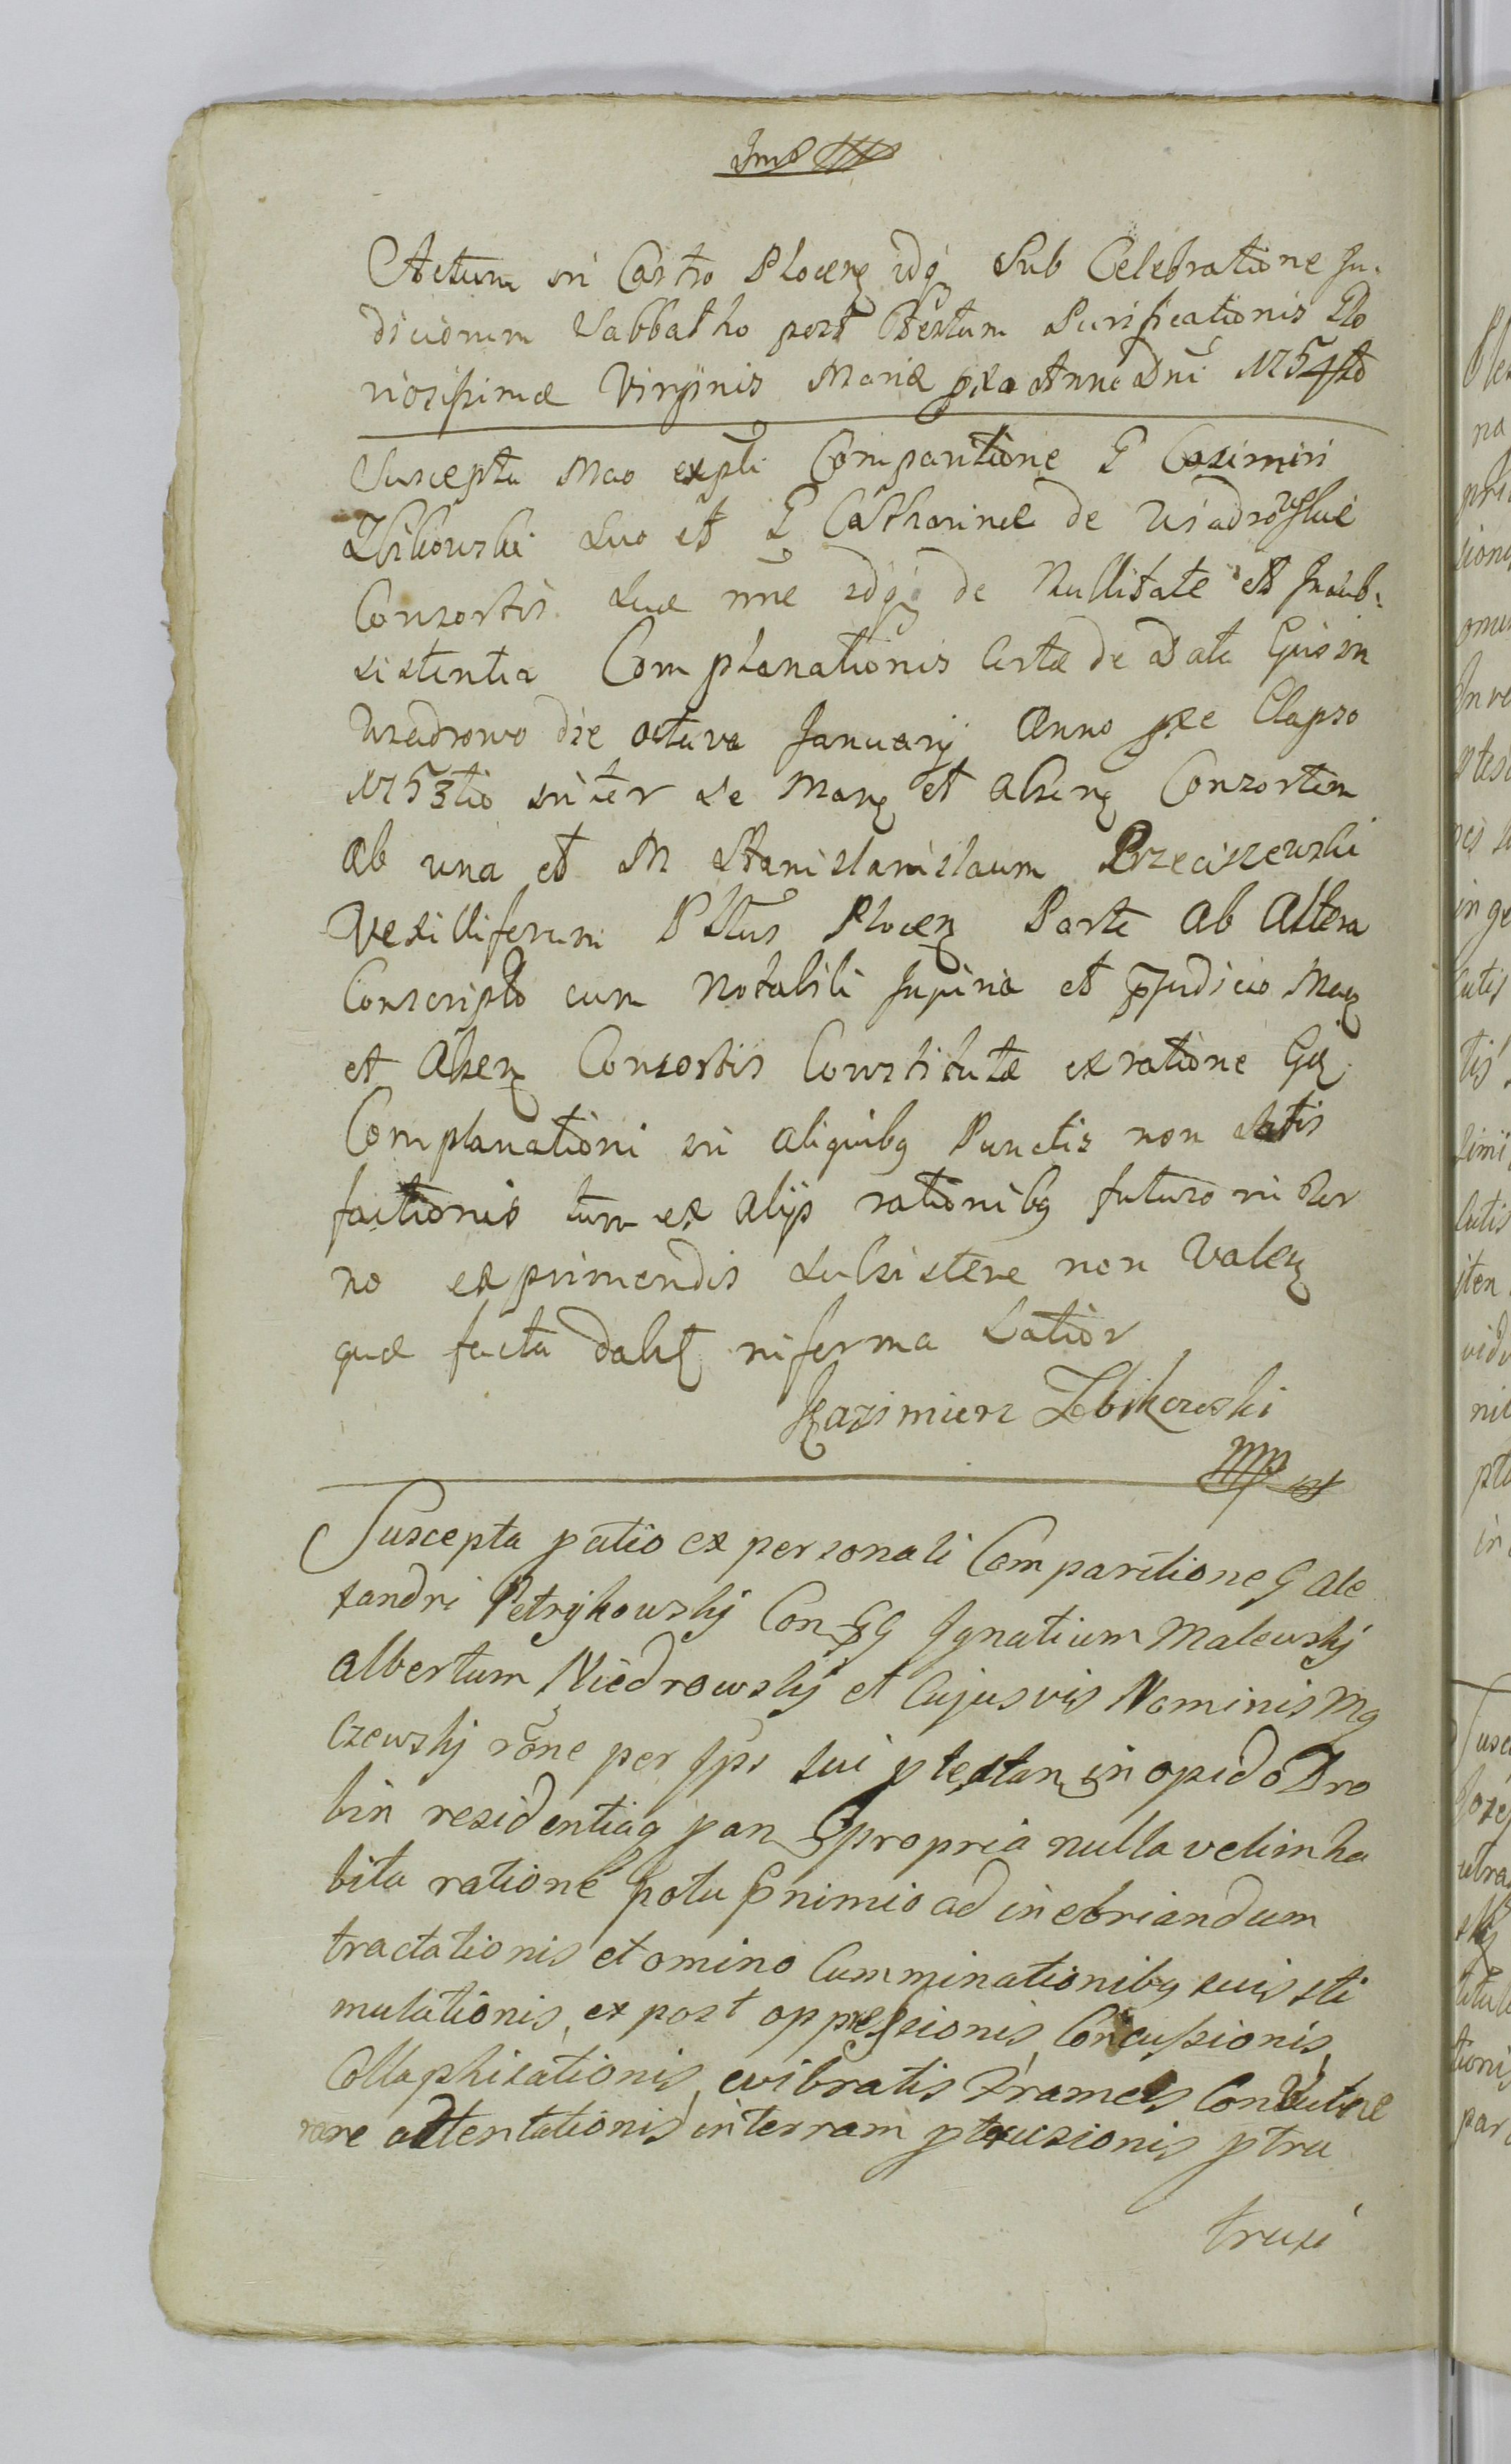 Actum in Castro Plocen idq Sub Celebratione Ju-
diciorum Sabbatho post Festum Purificationis Glo
riosissimæ Virginis Mariæ pxa Anno Dni 1754to
Suscepta Mao expli Comparitione G Casimiri
Zbikowski Suo et G Catharinæ de Usiadrowskie
Consortis Suæ nne idqꝫ de Nullitate et Insub-
sistentia Complanationis Certæ de Data Ejus in
Usadrowo die octava Januarij Anno pxe Elapso
1753tio inter se Man et absen Consortem
ab una et M Stanislanislaum Przeciszewski
Vexilliferum Pttus Plocen Parte ab altera
Conscripto cum Notabili Injuria et pjudicio Man
et Absen Consortis Constitutæ ex ratione Ejq
Complanationi in aliquibq Punctis non satis
factionis tum ex alijs rationibq futuro in Ter
no exprimendis subsistere non valen
quæ facta dabit in forma Latior
Kazimierz Zbikowski
mp
Suscepta ptatio ex personali Comparitione G Ale
xandri Petrykowskj Con GG Ignatium Malewskj
Albertum Niedrowskj et Cujusvis Nominis Mą
czewskj rone per Ips sui ptestan in opido Dro
bin residentiaq pan propria nulla vetim ha
bita ratione potu nimio ad inebriandum
tractationis et omino Cumminationibq suis sti
mulationis, ex post oppressionis, Concussionis,
Collaphisationis, evibratis Frameis Convulne
rare attentationis in terram ptrusionis ptru
truxi